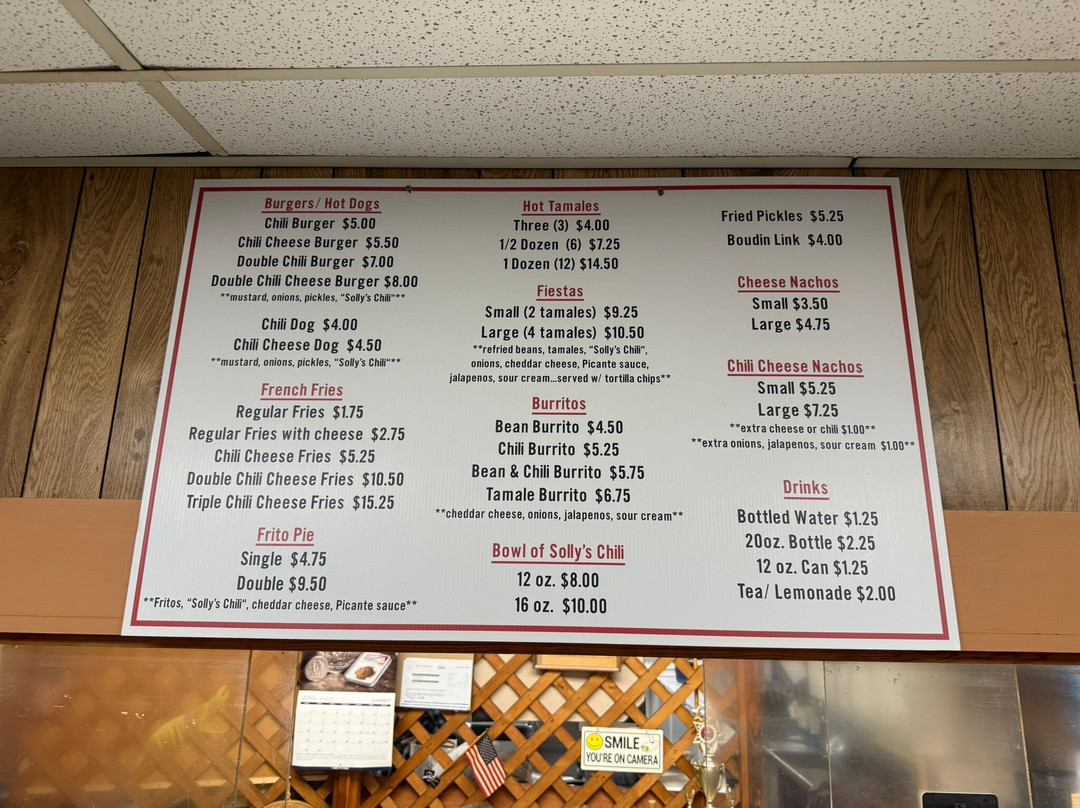 Burgers/ Hot Dogs
Chili Burger $5.00
Chili Cheese Burger $5.50
Double Chili Burger $7.00
Double Chili Cheese Burger $8.00
**mustard, onions, pickles, "Solly's Chili"**
Chili Dog $4.00
Chili Cheese Dog $4.50
**mustard, onions, pickles, "Solly's Chili"**
French Fries
Regular Fries $1.75
Regular Fries with cheese $2.75
Chili Cheese Fries $5.25
Double Chili Cheese Fries $10.50
Triple Chili Cheese Fries $15.25
Frito Pie
Single $4.75
Double $9.50
**Fritos, "Solly's Chili", cheddar cheese, Picante sauce**
Hot Tamales
Three (3) $4.00
1/2 Dozen (6) $7.25
1 Dozen (12) $14.50
Fiestas
Small (2 tamales) $9.25
Large (4 tamales) $10.50
**refried beans, tamales, "Solly's Chili",
onions, cheddar cheese, Picante sauce,
jalapenos, sour cream...served w/ tortilla chips**
Burritos
Bean Burrito $4.50
Chili Burrito $5.25
Bean & Chili Burrito $5.75
Tamale Burrito $6.75
**cheddar cheese, onions, jalapenos, sour cream**
Bowl of Solly's Chili
12 oz. $8.00
16 oz. $10.00
Fried Pickles $5.25
Boudin Link $4.00
Cheese Nachos
Small $3.50
Large $4.75
Chili Cheese Nachos
Small $5.25
Large $7.25
**extra cheese or chili $1.00**
**extra onions, jalapenos, sour cream $1.00**
Drinks
Bottled Water $1.25
20oz. Bottle $2.25
12 oz. Can $1.25
Tea/ Lemonade $2.00
SMILE
YOU'RE ON CAMERA